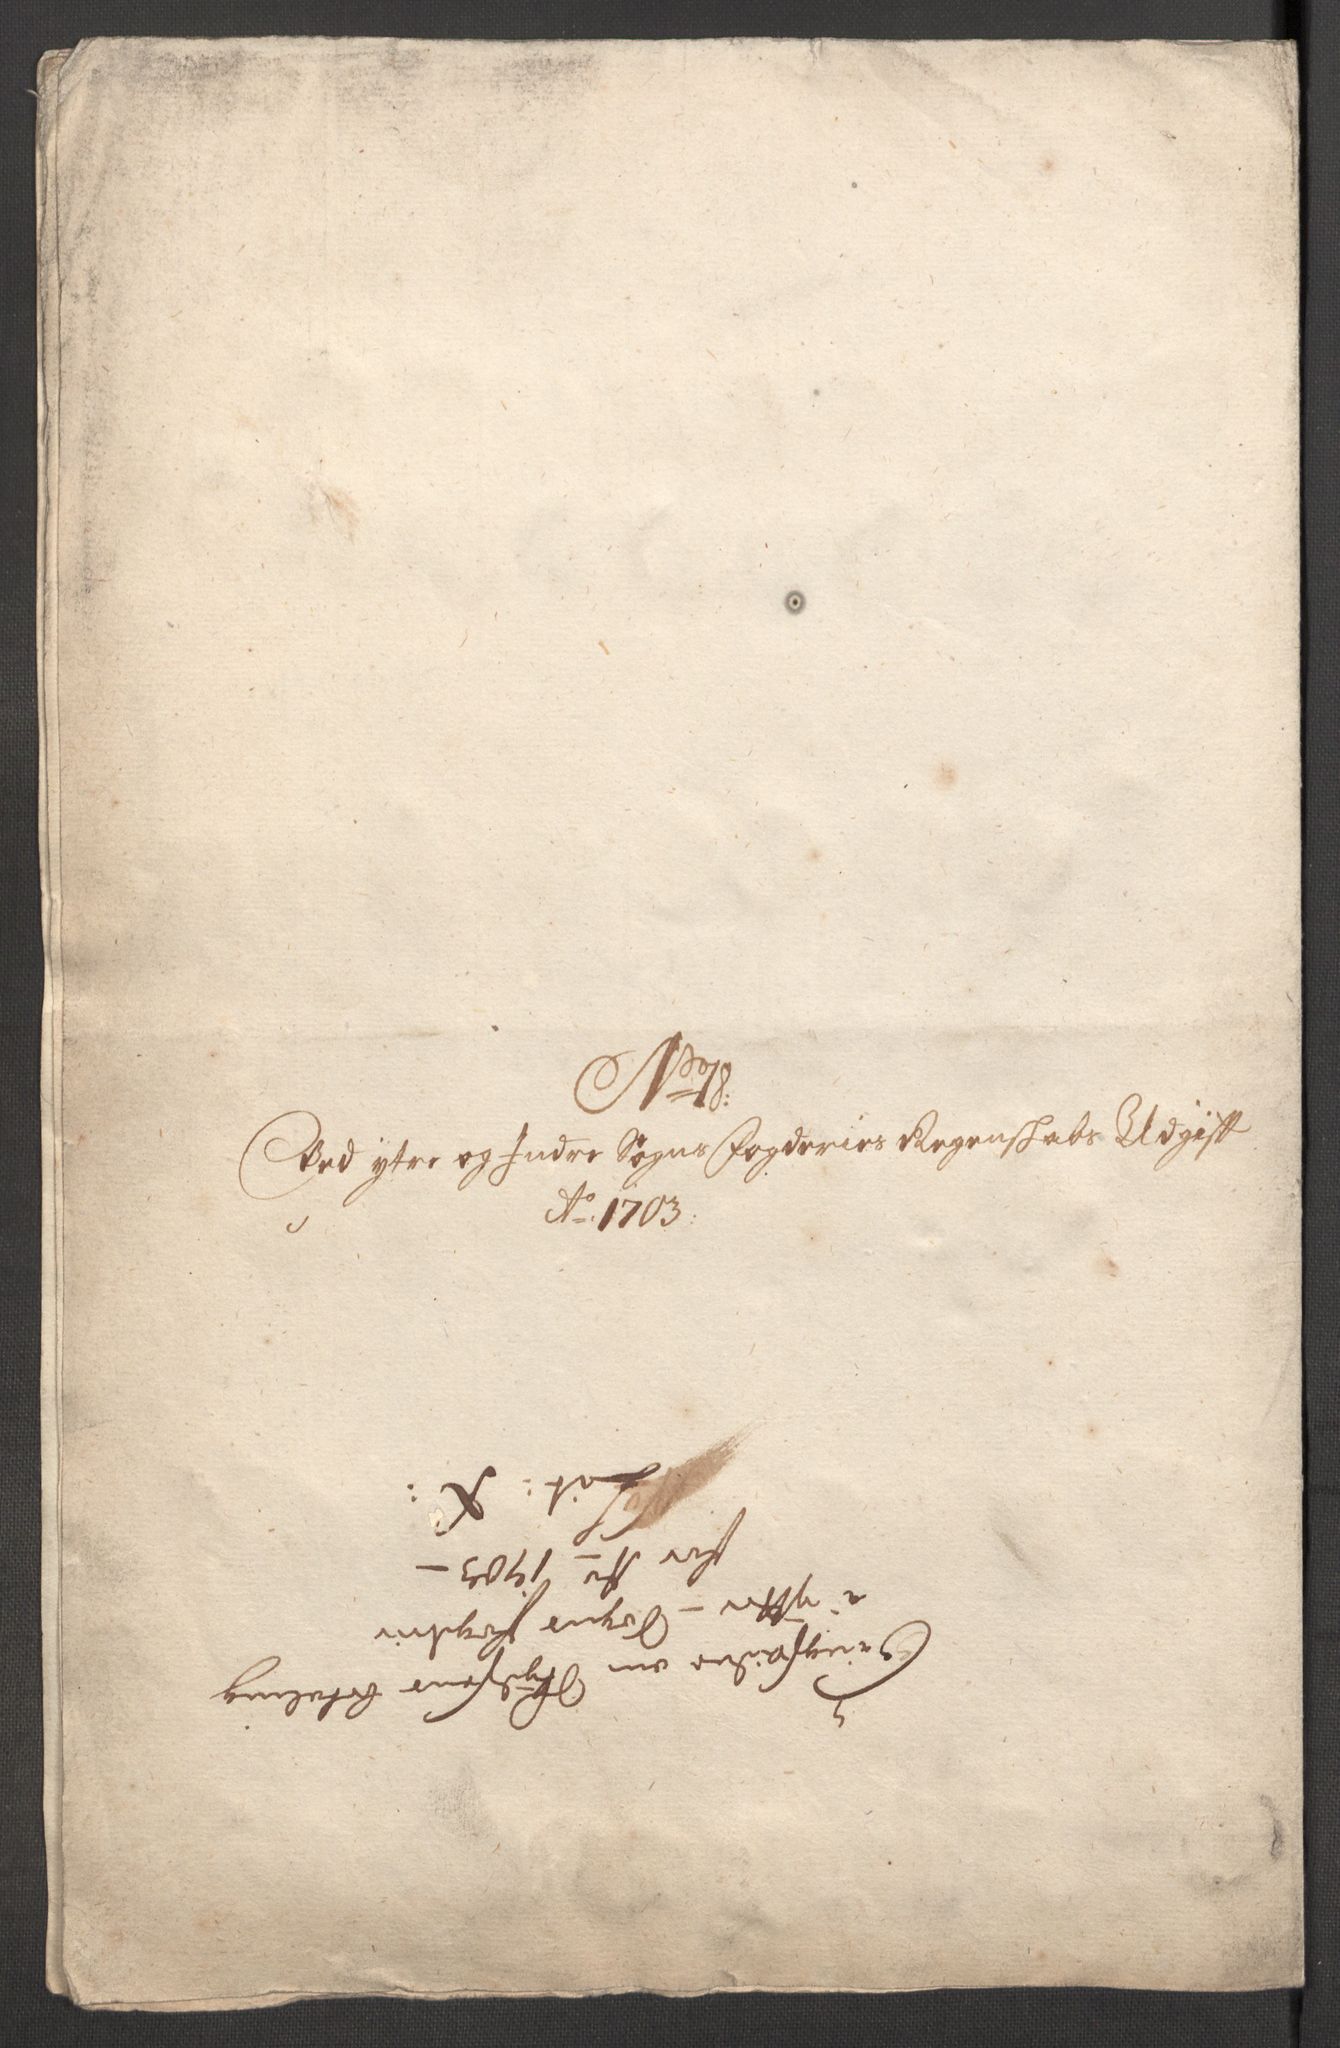 No 18:
Ved ytre og Indre Sogns Fogderies Regenskabs Udgift
Ao. 1703:
om Schydtzens betaling
i ytter – Sogns fogderie
for Ao 1703 –
Lit: X :